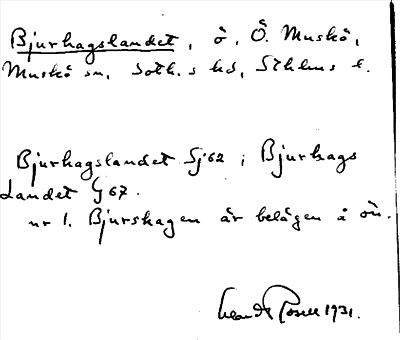 Bjurhagslandet, ö, Ö. Muskö,
Muskö sn, Soth.s hd, Sthlms l.
Bjurhagslandet Sj 62 ; Bjurhags
Landet G 67.
nr 1. Bjurshagen är belägen å ön.
1931.